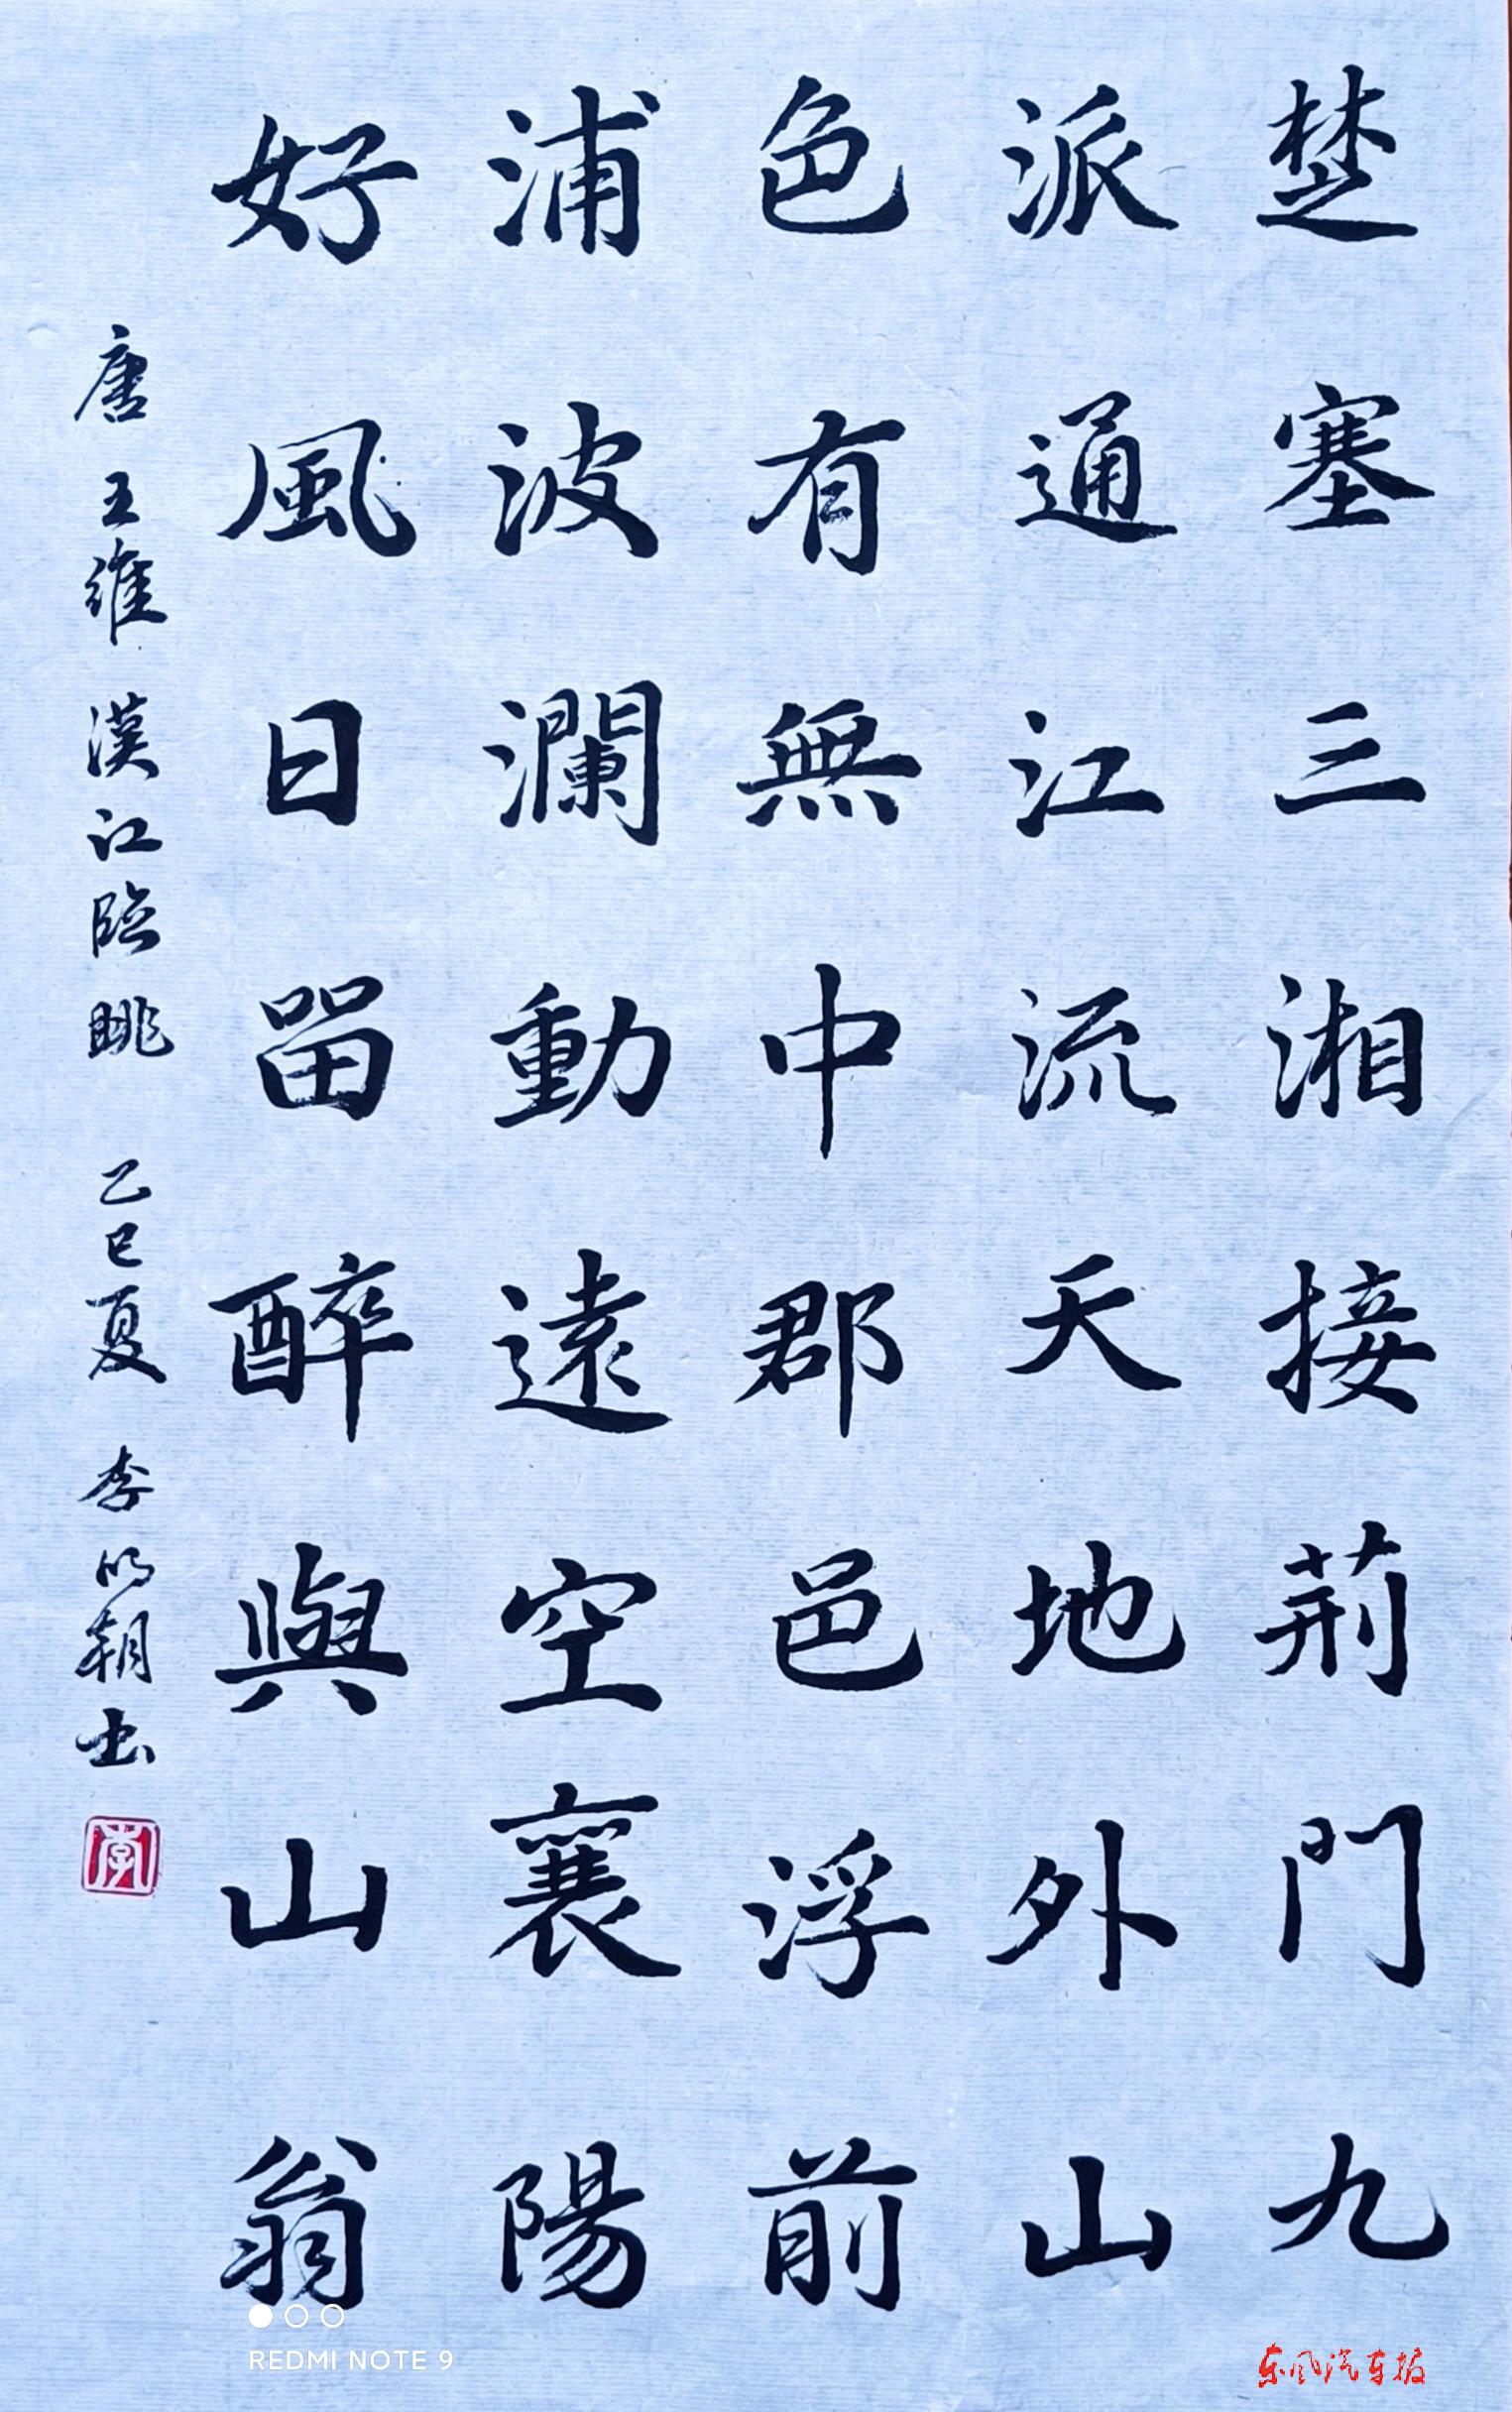 楚塞三湘接荊門九
派通江流天地外山
色有無中郡邑浮前
浦波瀾動遠空襄陽
好風日留醉與山翁
唐王維漢江臨眺乙巳夏李明朝书
李
REDMI NOTE 9
东风汽车报